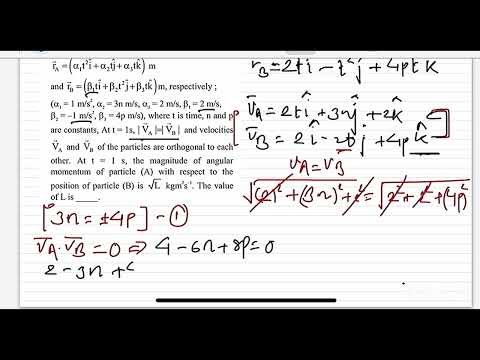 r⃗_A = (α₁t²î + α₂tĵ + α₃tk̂) m
and r⃗_B = (β₁tî + β₂t²ĵ + β₃tk̂) m, respectively ;
(α₁ = 1 m/s², α₂ = 3n m/s, α₃ = 2 m/s, β₁ = 2 m/s,
β₂ = –1 m/s², β₃ = 4p m/s), where t is time, n and p
are constants. At t = 1s, |V⃗_A| = |V⃗_B| and velocities
V⃗_A and V⃗_B of the particles are orthogonal to each
other. At t = 1 s, the magnitude of angular
momentum of particle (A) with respect to the
position of particle (B) is √L kgm²s⁻¹. The value
of L is _____.
r_B = 2tî – t²ĵ + 4ptk̂
V̄_A = 2tî + 3nĵ + 2k̂
V̄_B = 2î – 2tĵ + 4pk̂
V_A = V_B
√((2)² + (3n)² + 2²) = √(2² + 2² + (4p)²)
[3n = ±4p] – ①
V̄_A . V̄_B = 0 ⇒ 4 – 6n + 8p = 0
2 – 3n +